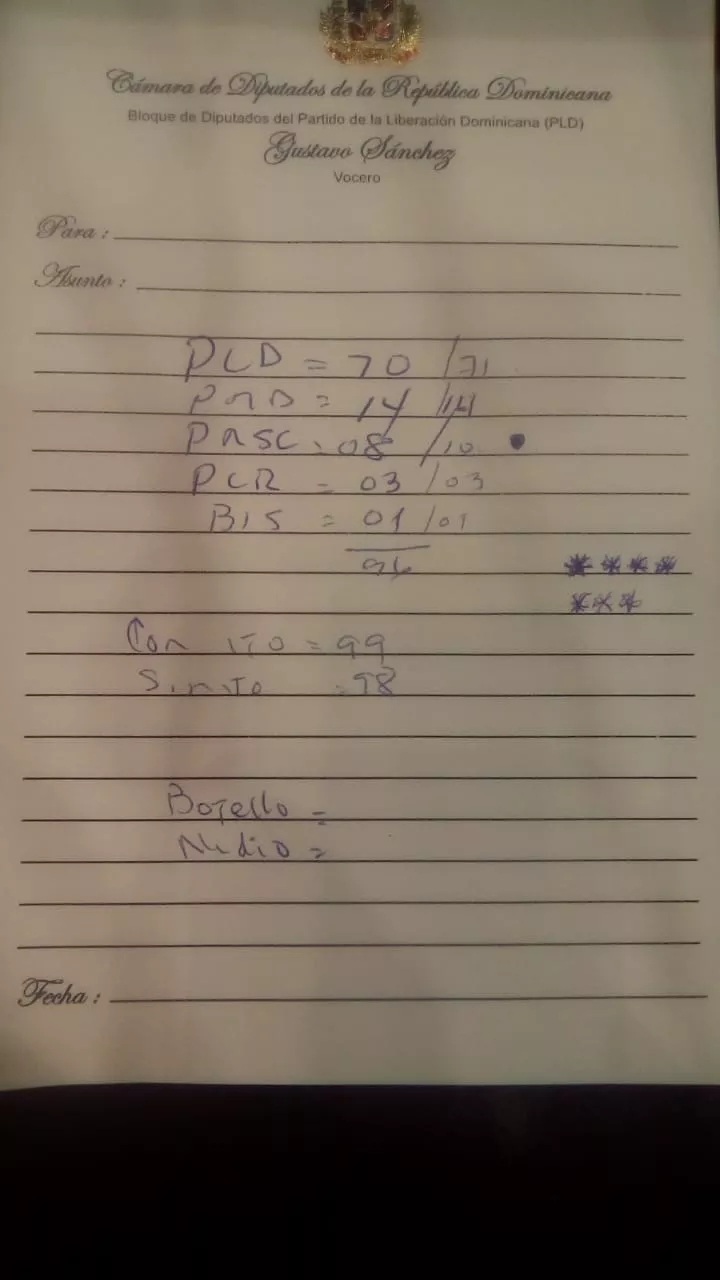 Cámara de Diputados de la República Dominicana
Bloque de Diputados del Partido de la Liberación Dominicana (PLD)
Gustavo Sánchez
Vocero
Para :
Asunto :
PLD = 70 /71
PRD = 14 /14
PRSC = 08 /10
PLR = 03 /03
BIS = 01 /01
96
Con ITO = 99
Sin ITO = 98
Botello =
Nidio =
Fecha :